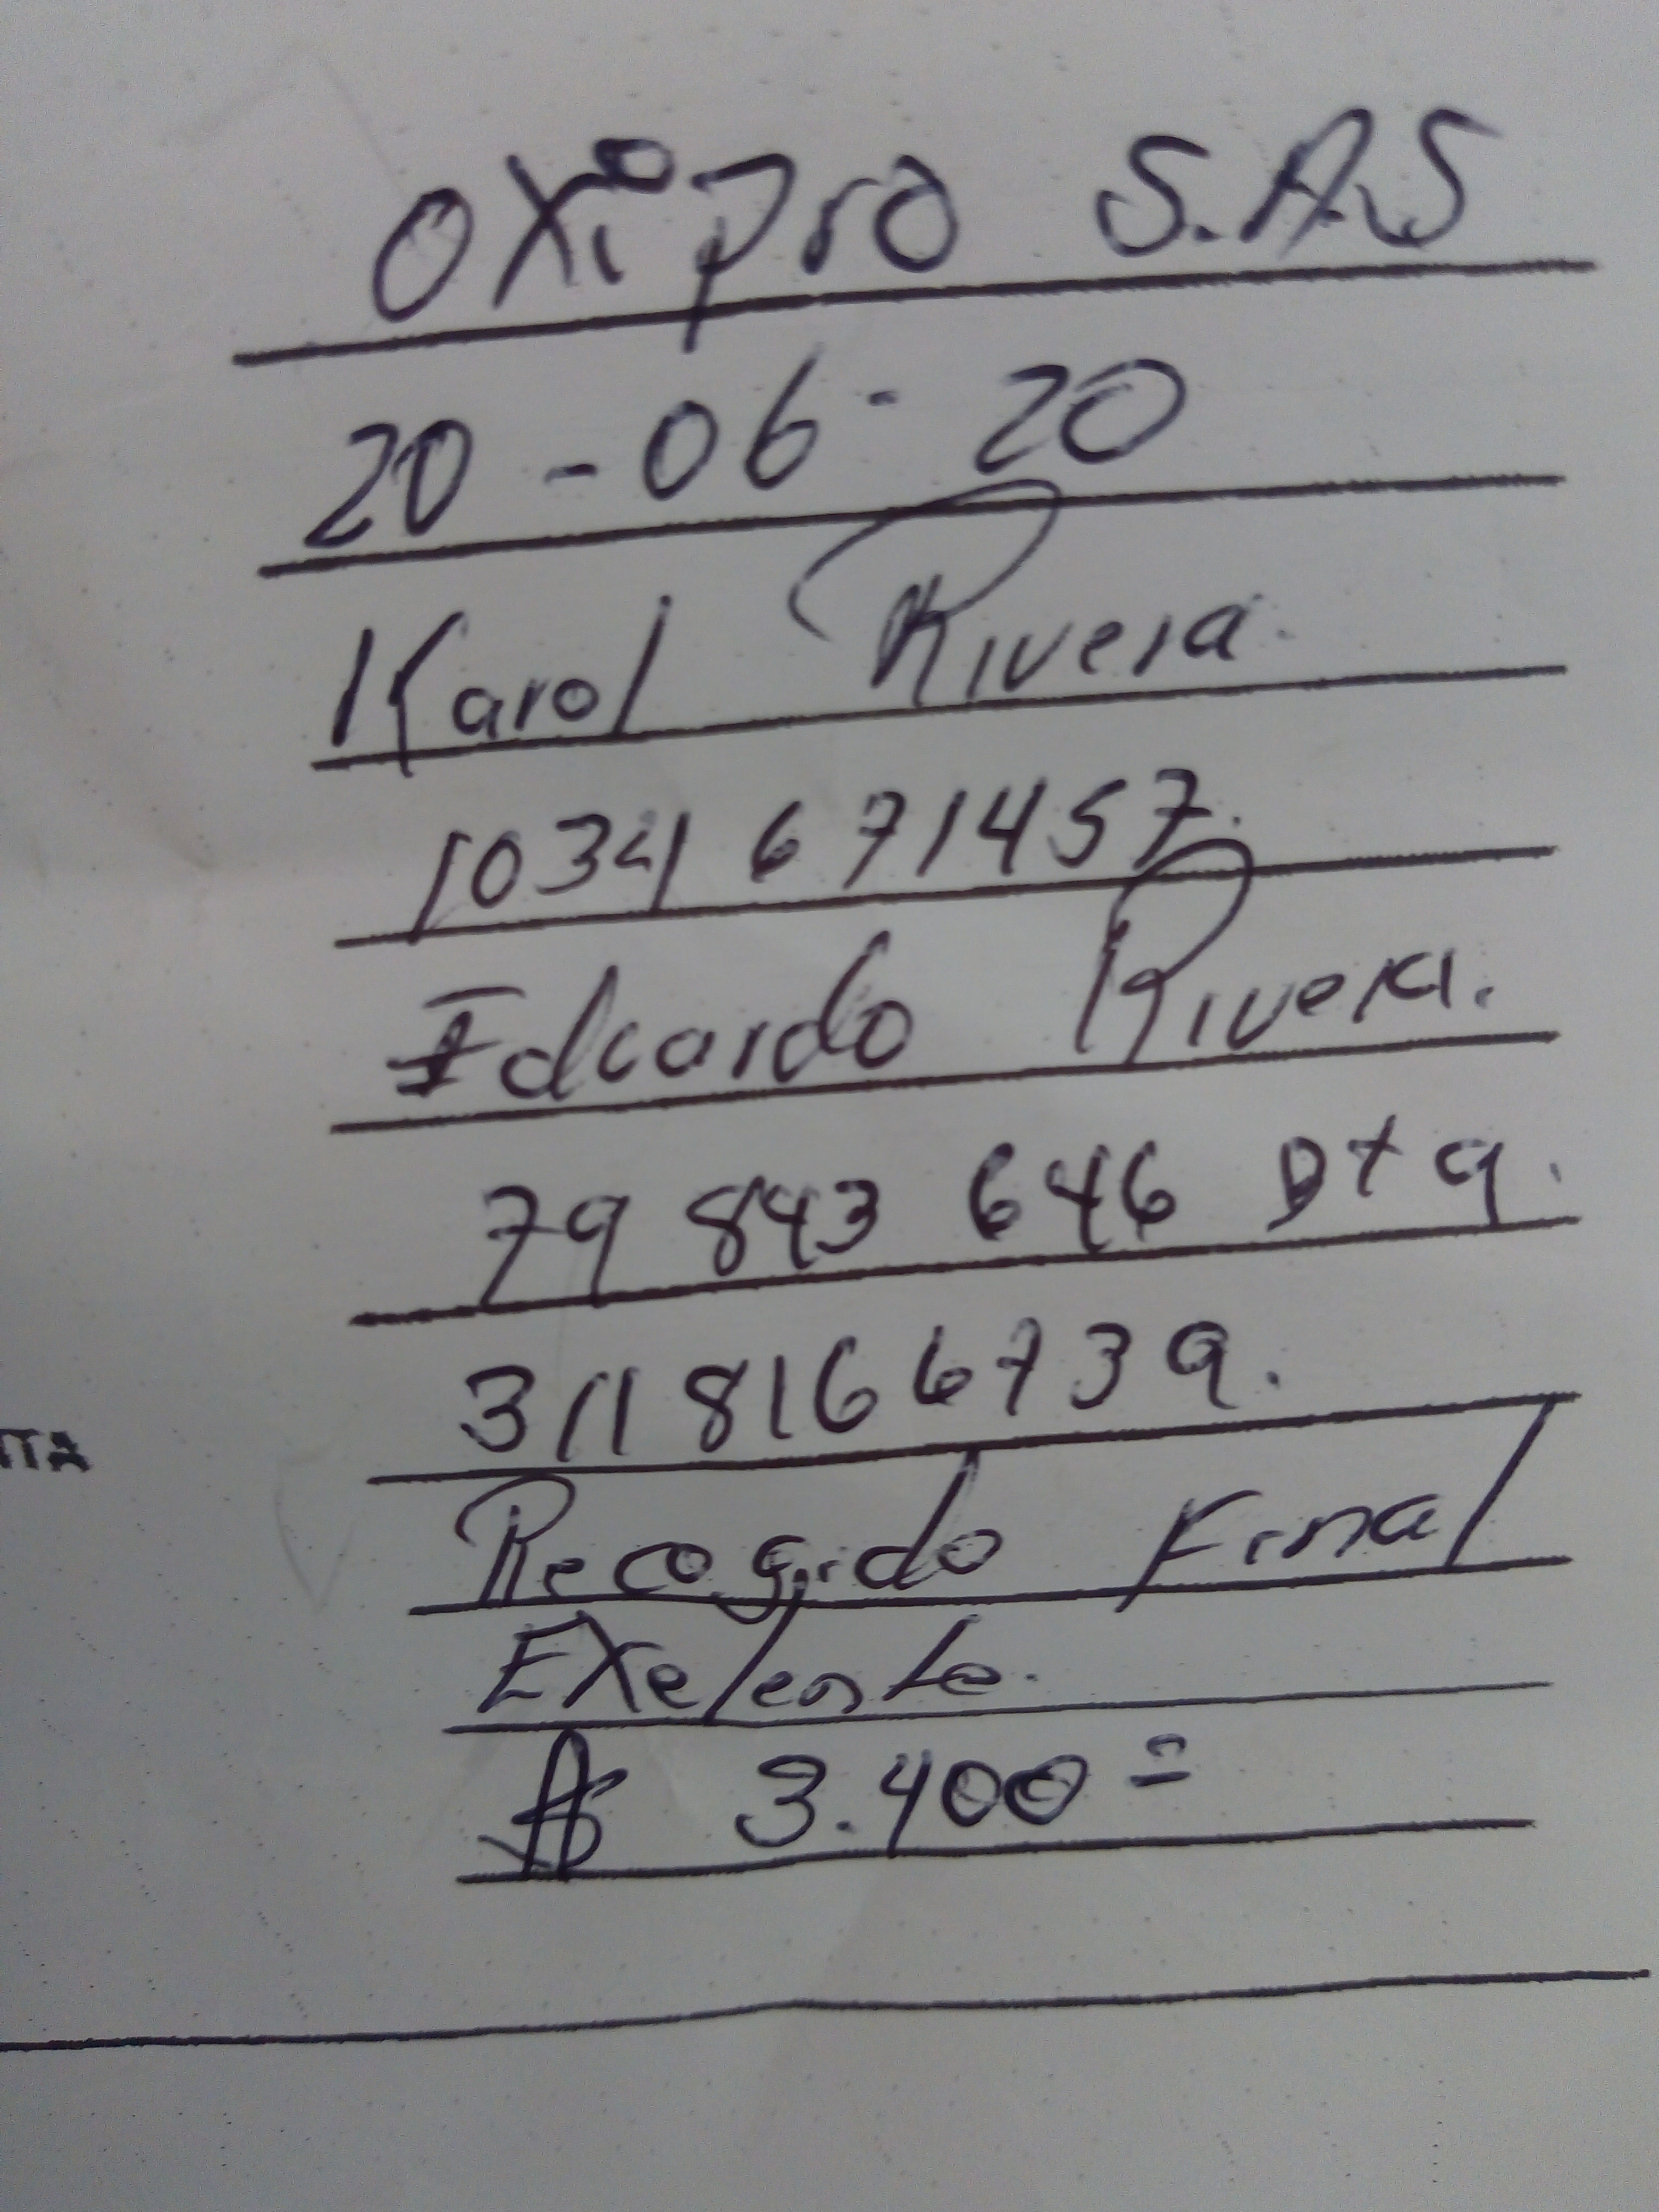 Oxipro S.A.S
20-06-20
Karol Rivera.
1034 671457.
Edcardo Rivera.
79 843 646 Bta.
311 8166739.
Recogido Final
Exelente.
$ 3.400=